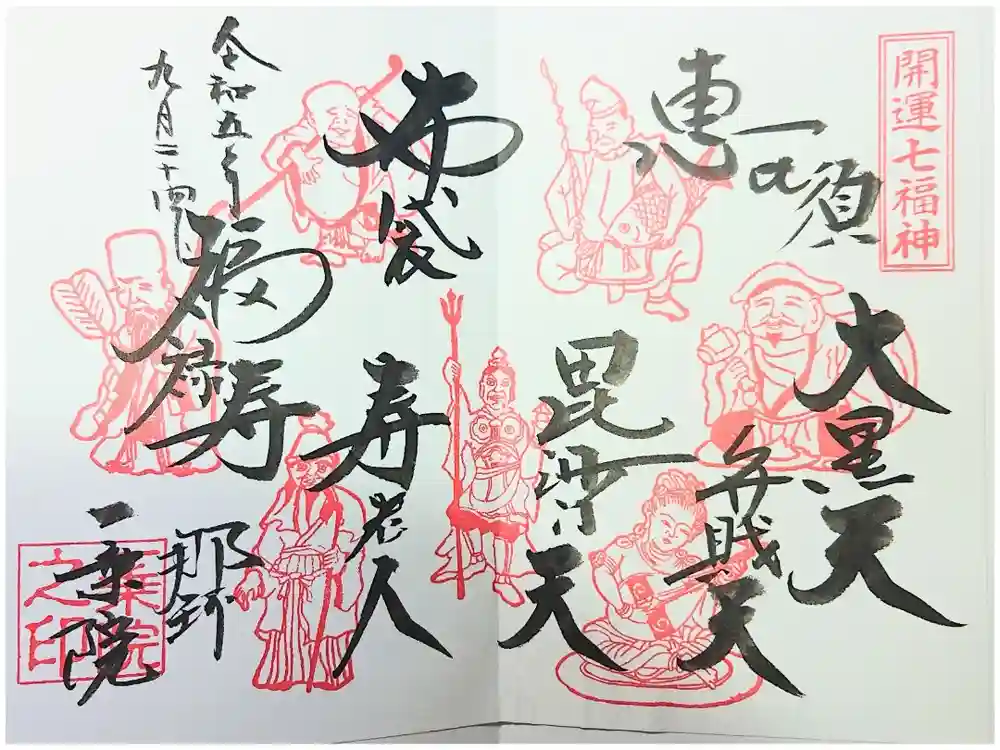 開運七福神
恵比須
大黒天
弁財天
毘沙門天
布袋
寿老人
福禄寿
令和五年
九月二十四日
那珂
一乗院
一乗院之印